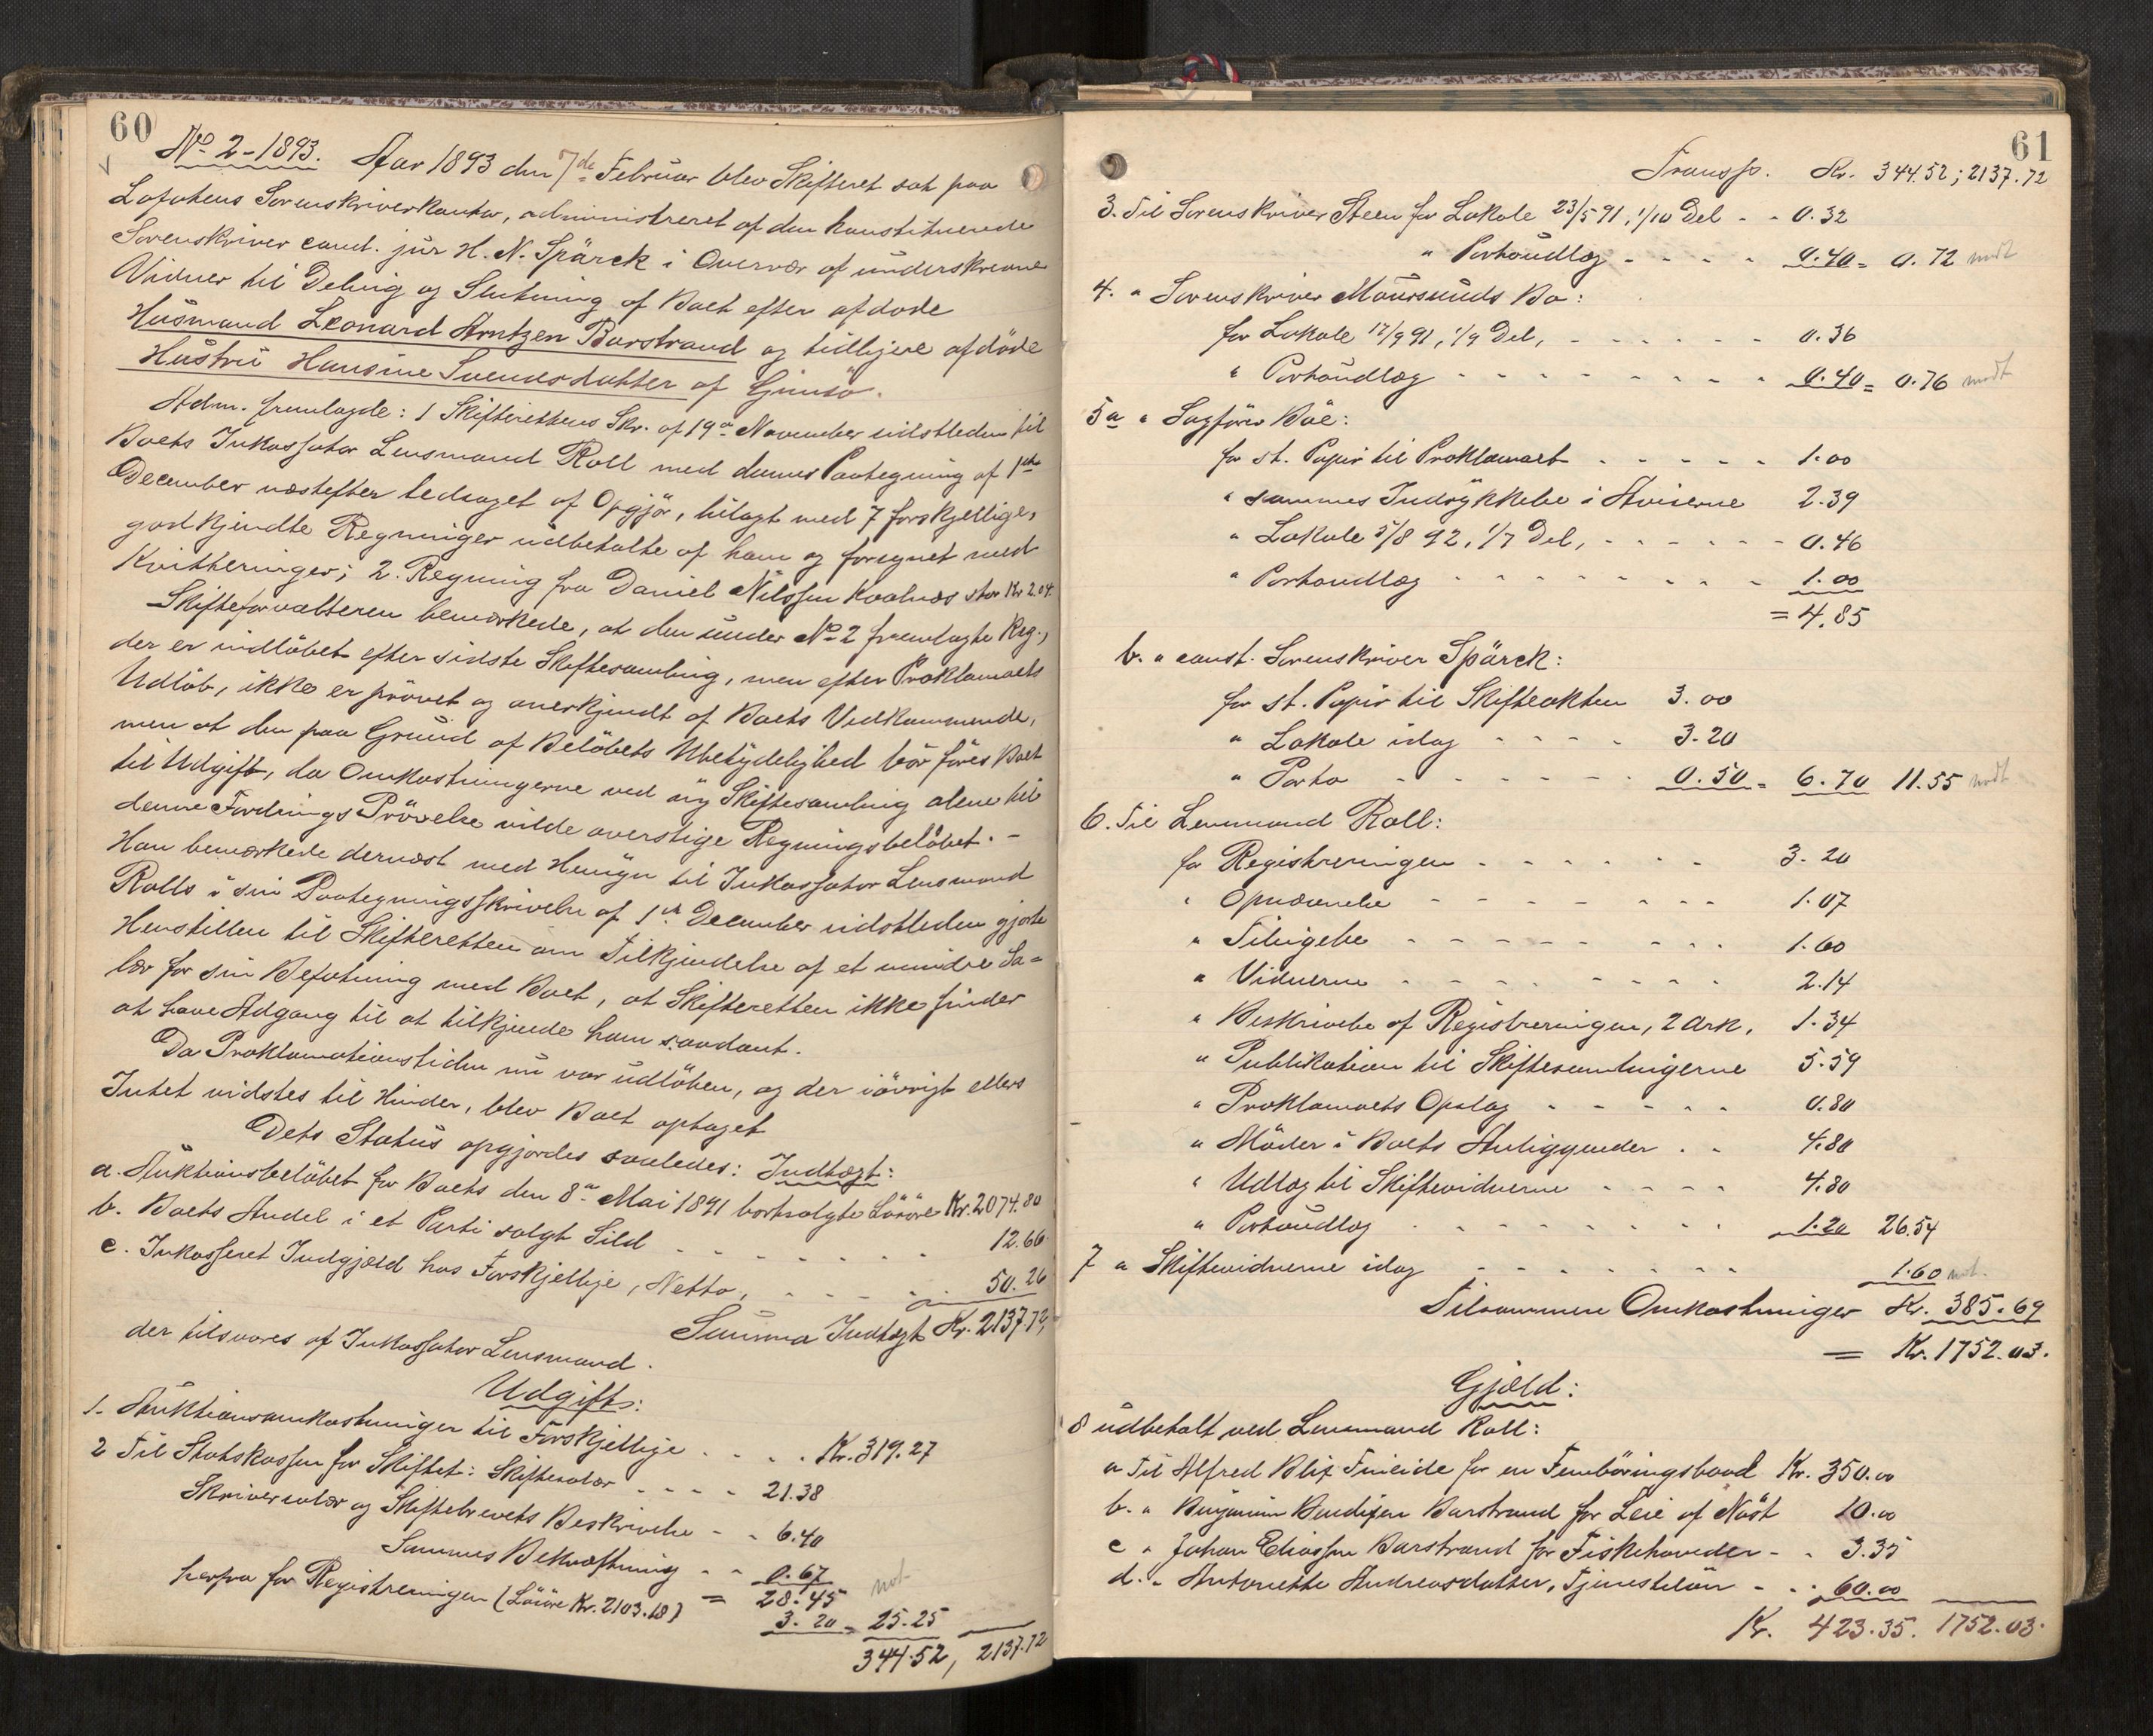 60
No 2-1893. Aar 1893 den 7de Februar blev Skifteret sat paa
Lofotens Sorenskriverkontor, administreret af den konstituerede
Sorenskriver cand. jur H. N. Spärck i Overvær af underskrevne
Vidner til Deling og Slutning af Boet efter afdöde
Husmand Leonard Arntzen Barstrand og tidligere afdöde
Hustru Hansine Svendsdatter af Gimsö.
Adm. fremlagde: 1 Skifterettens Skr. af 19de November sidstleden til
Boets Inkassator Lensmand Roll med dennes Paategning af 1ste
December næstefter ledsaget af Opgjör, bilagt med 7 forskjellige,
godkjendte Regninger udbetalte af ham og forsynet med
Kvitteringer; 2. Regning fra Daniel Nilssen Kvalnæs stor Kr 2.04.
Skifteforvalteren bemærkede, at den under No 2 fremlagte Reg.,
der er indlöbet efter sidste Skiftesamling, men efter Proklamaets
Udlöb, ikke er prövet og anerkjendt af Boets Vedkommende,
men at den paa Grund af Belöbets Ubetydelighed bör föres Boet
til Udgift, da Omkostningerne ved ny Skiftesamling alene til
denne Fordrings Prövelse vilde overstige Regningsbelöbet. -
Han bemærkede dernæst med Hensyn til Inkassator Lensmand
Rolls i sin Paategningsskrivelse af 1ste December sidstleden gjorte
Henstillen til Skifteretten om Tilkjendelse af et mindre Sa-
lær for sin Befatning med Boet, at Skifteretten ikke finder
at have Adgang til at tilkjende ham saadant.
Da Proklamationstiden nu var udlöben, og der iövrigt ellers
Intet vidstes til Hinder, blev Boet optaget
Dets Status opgjordes saaledes: Indtægt:
a. Auktionsbelöbet for Boets den 8de Mai 1891 bortsolgte Lösöre Kr. 2074.80
b. Boets Andel i et Parti solgt Sild - - - - - - - 12.66
c. Inkasseret Indgjæld hos Forskjellige, Netto, - - - - 50.26
Summa Indtægt Kr. 2137.72,
der tilsvares af Inkassator Lensmand.
Udgift:
1. Auktionsomkostninger til Forskjellige . . . . Kr. 319.27
2 Til Statskassen for Skiftet: Skiftesalær - - - - 21.38
Skriversalær og Skiftebrevets Beskrivelse - - 6.40
Sammes Bekræftning - - 0.67
= 28.45
herfra for Registreringen (Lösöre Kr. 2103.18) 3.20 = 25.25
344.52, 2137.72
61
Transp. Kr. 344.52; 2137.72
3. Til Sorenskriver Steen for Lokale 23/5 91, 1/10 Del - - 0.32
" Portoudlæg - - - - 0.40 = 0.72
4. " Sorenskriver Maursunds Bo:
for Lokale 12/9 91, 1/9 Del, - - - - - - 0.36
" Portoudlæg - - - - - - - - 0.40 = 0.76
5 a " Sagförer Böe:
for st. Papir til Proklamaet - - - - - 1.00
" sammes Indrykkelse i Aviserne 2.39
" Lokale 5/8 92, 1/7 Del, - - - - - - 0.46
" Portoudlæg - - - - - - - - 1.00
= 4.85
b. " const. Sorenskriver Spärck:
for st. Papir til Skifteakten 3.00
" Lokale idag - - - - 3.20
" Porto - - - - - - 0.50 = 6.70 11.55
6. Til Lensmand Roll:
for Registreringen - - - - - - 3.20
" Opnævnelse - - - - - - - 1.07
" Tilsigelse - - - - - - - 1.60
" Vidnerne - - - - - - - 2.14
" Beskrivelse af Registreringen, 2 Ark, 1.34
" Publikation til Skiftesamlingerne 5.59
" Proklamaets Opslag - - - - - 0.80
" Möder i Boets Anliggender . - 4.80
" Udlæg til Skiftevidnerne - - - - 4.80
" Portoudlæg - - - - - - - - 1.20 26.54
7 " Skiftevidnerne idag - - - - - - 1.60
Tilsammen Omkostninger Kr. 385.69
= Kr. 1752.03.
Gjæld:
8 udbetalt ved Lensmand Roll:
a Til Alfred Blix Fineide for en Femböringsbaad Kr. 350.00
b. " Benjamin Bendixen Barstrand for Leie af Nöst 10.00
c " Johan Eliassen Barstrand for Fiskehoveder - - 3.35
d. " Antonette Andreasdatter, Tjenestelön - - - 60.00
Kr. 423.35. 1752.03.